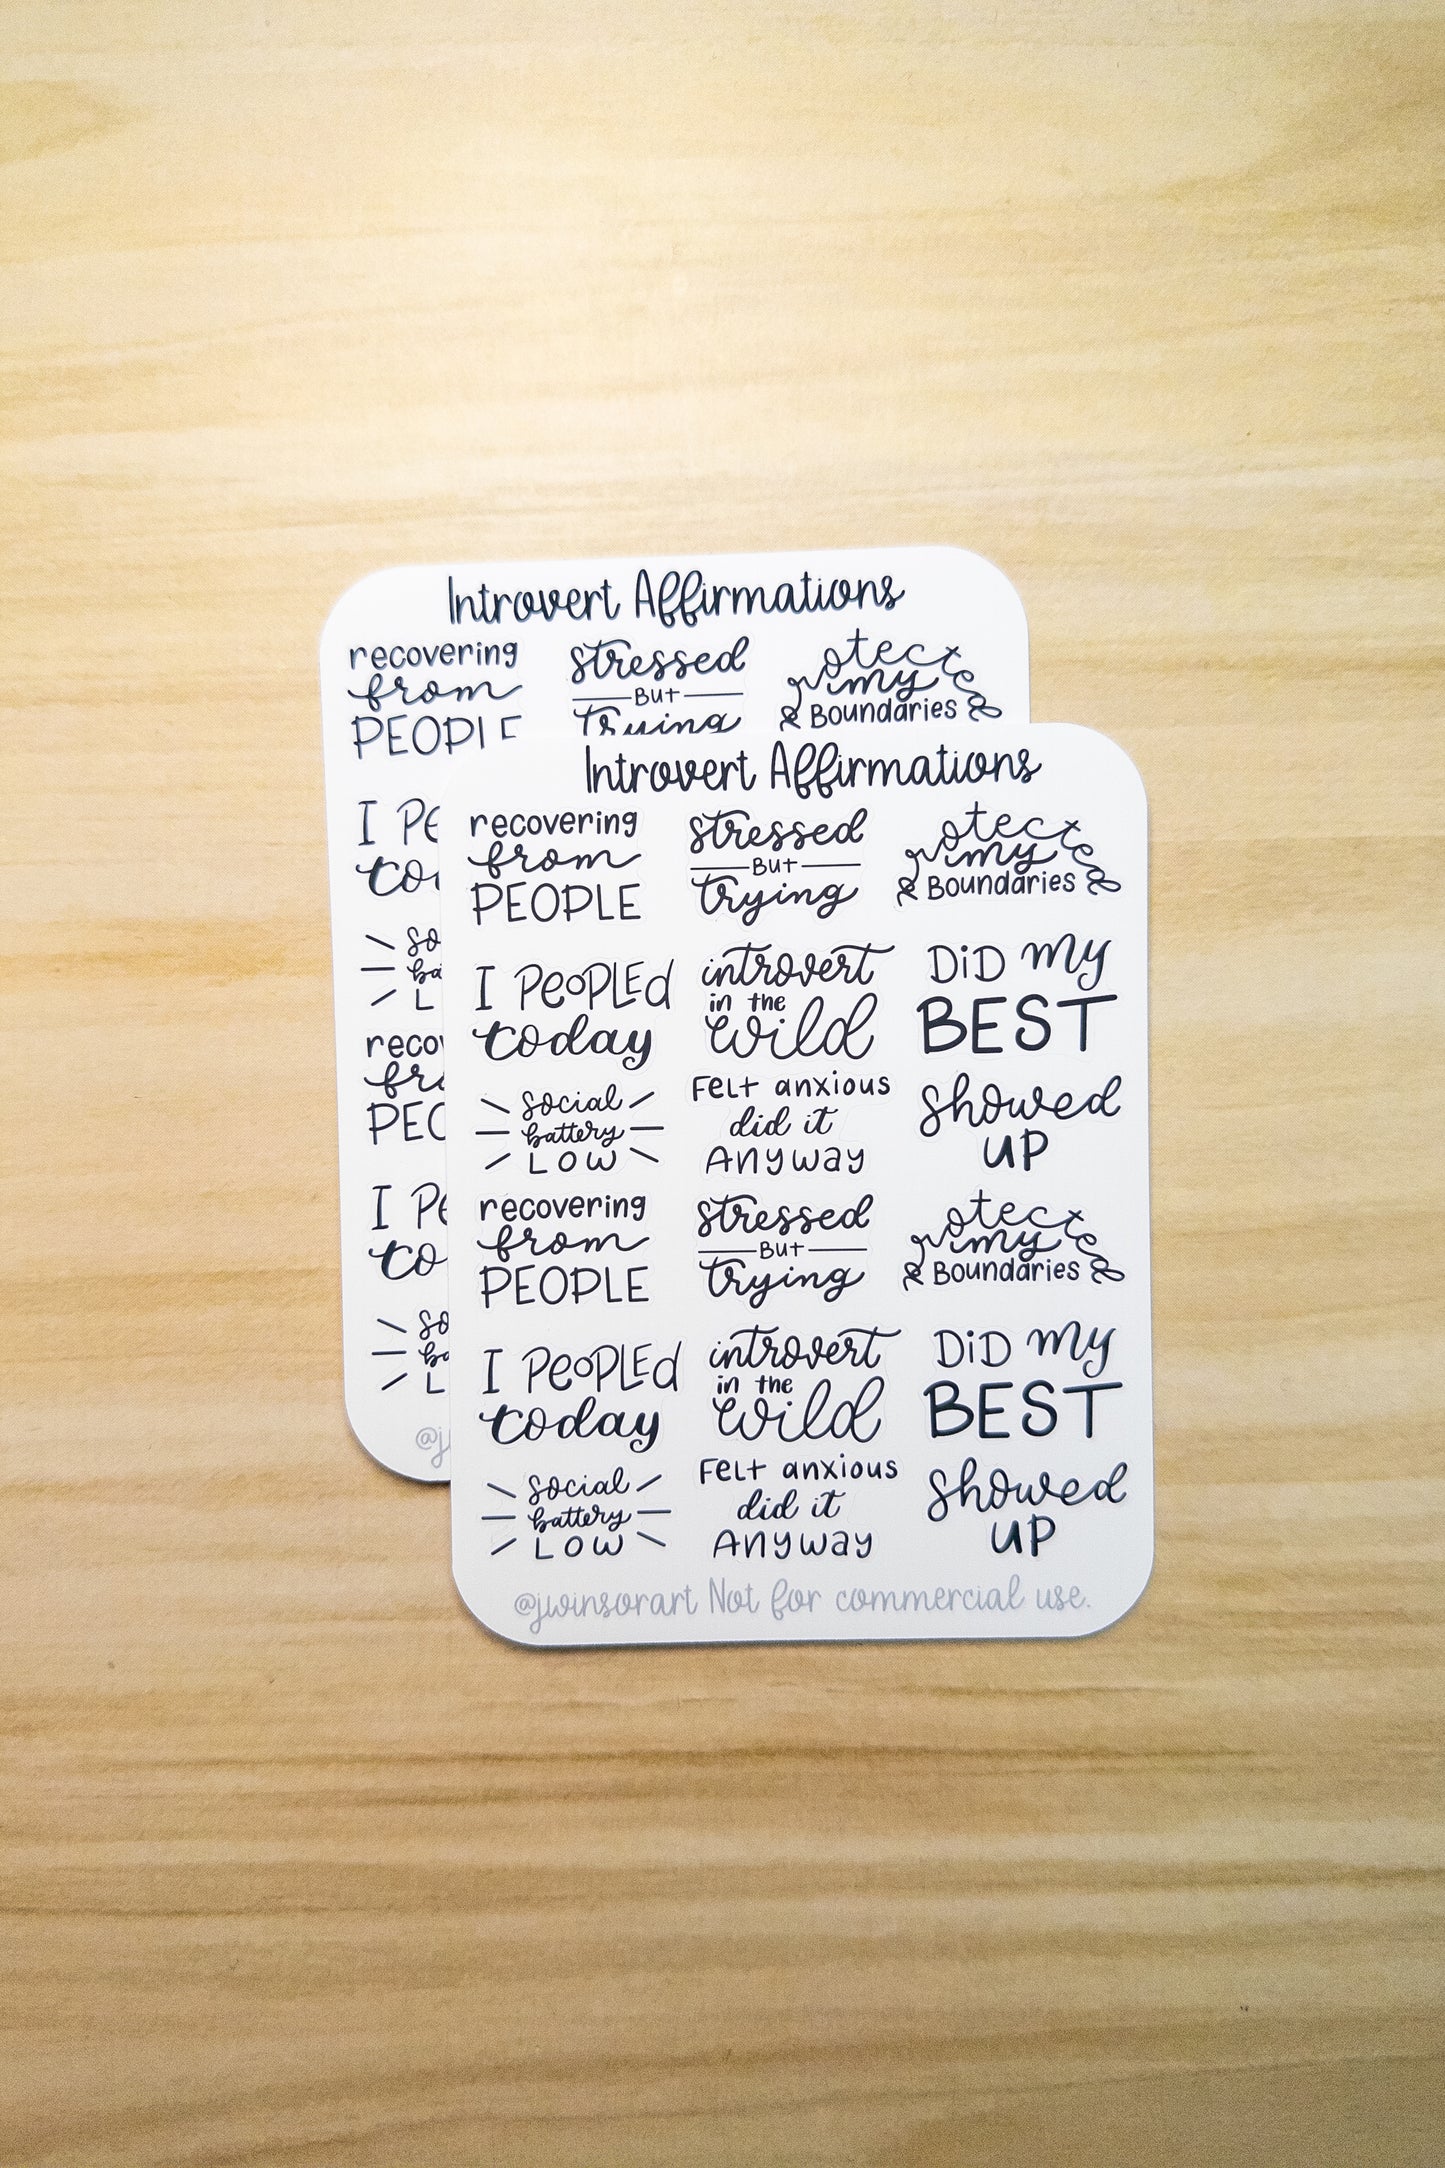 Introvert Affirmations
recovering
from
PEOPLE
stressed
BUT
trying
protected
my
& Boundaries
I PE
to
so
ba
L
reco
fr
PEO
I PE
to
so
ba
L
@j
Introvert Affirmations
recovering
from
PEOPLE
stressed
BUT
trying
protected
my
& Boundaries
I PEOPLED
today
introvert
in the
wild
DiD my
BEST
social
battery
LOW
FELT anxious
did it
ANYWAY
showed
UP
recovering
from
PEOPLE
stressed
BUT
trying
protected
my
& Boundaries
I PEOPLED
today
introvert
in the
wild
DiD my
BEST
social
battery
LOW
FELT anxious
did it
ANYWAY
showed
UP
@jwinsorart Not for commercial use.